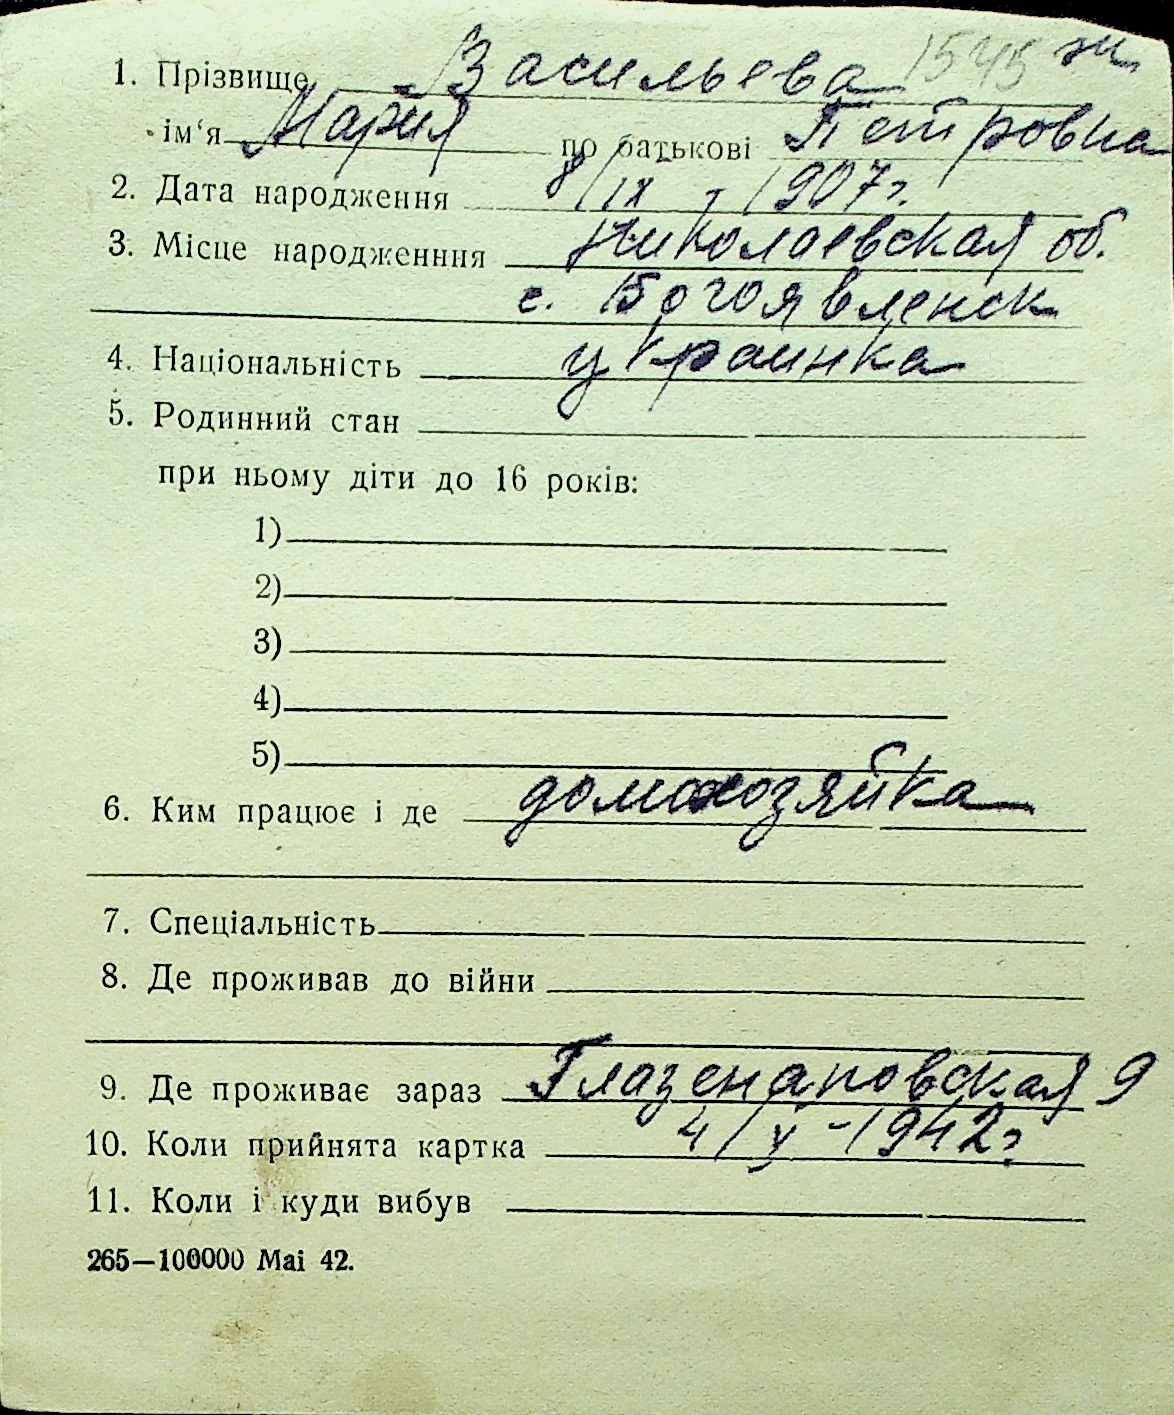 1. Прізвище Васильева 1545
ім‘я Мария по батькові Петровна
2. Дата народження 8/IX - 1907г.
3. Місце народженння Николаевская об.
с. Богоявленск
4. Національність украинка
5. Родинний стан
при ньому діти до 16 років:
1)
2)
3)
4)
5)
6. Ким працює і де домохозяйка
7. Спеціальність
8. Де проживав до війни
9. Де проживає зараз Глазенаповская 9
10. Коли прийнята картка 4/V-1942г
11. Коли і куди вибув
265—100000 Mai 42.